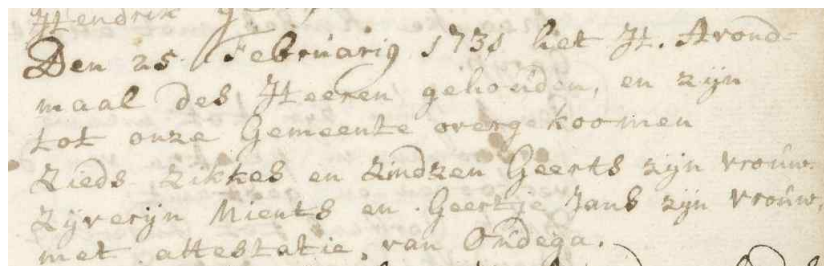 Hendrik
Den 25 Februarij 1731 het H. Avond=
maal des Heeren gehouden, en zijn
tot onze Gemeente overgekoomen
Zieds Zikkes en Zindzen Geerts zijn vrouw.
Zijverijn Mients en Geertje Jans zijn vrouw,
met attestatie, van Oudega.